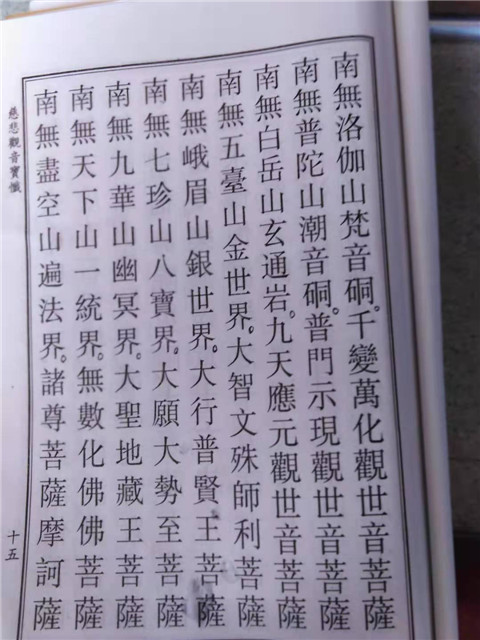 南無洛伽山梵音硐。千變萬化觀世音菩薩
南無普陀山潮音硐。普門示現觀世音菩薩
南無白岳山玄通岩。九天應元觀世音菩薩
南無五臺山金世界。大智文殊師利菩薩
南無峨眉山銀世界。大行普賢王菩薩
南無七珍山八寶界。大願大勢至菩薩
南無九華山幽冥界。大聖地藏王菩薩
南無天下山一統界。無數化佛佛菩薩
南無盡空山遍法界。諸尊菩薩摩訶薩
慈悲觀音寶懺
十五